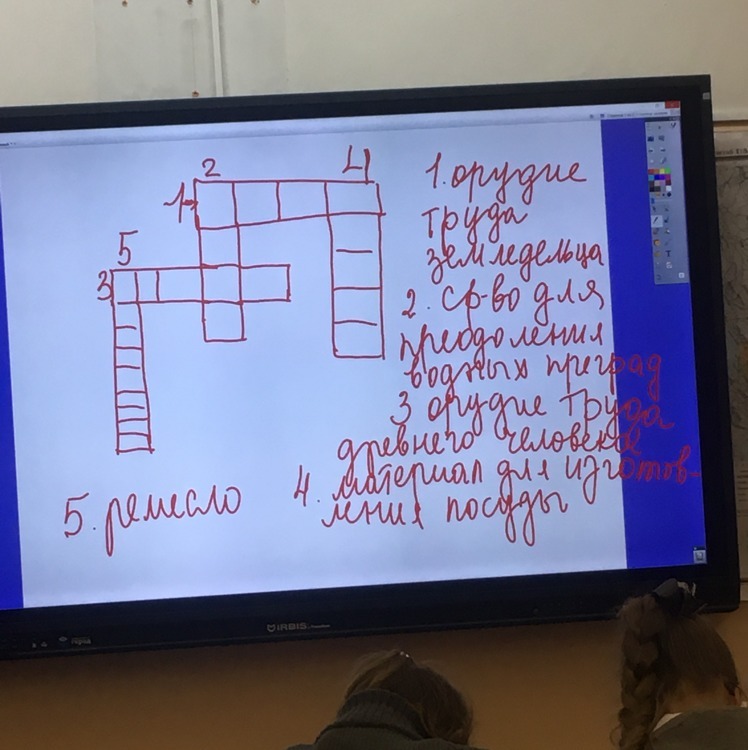 2
4
1
5
3
1. орудие
труда
земледельца
2. ср-во для
преодоления
водных преград
3 орудие труда
древнего человека
4. материал для изготов-
ления посуды
5. ремесло
IRBIS